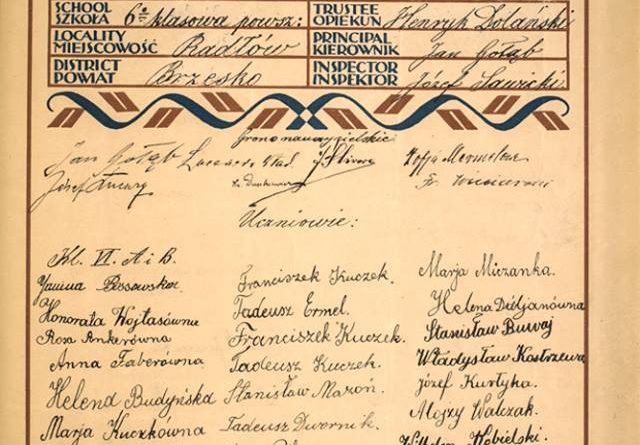 SCHOOL SZKOŁA 6cio klasowa powsz:
TRUSTEE OPIEKUN Henryk Dolański
LOCALITY MIEJSCOWOŚĆ Radłów
PRINCIPAL KIEROWNIK Jan Gołąb
DISTRICT POWIAT Brzesko
INSPECTOR INSPEKTOR Józef Sawicki
Grono nauczycielskie
Jan Gołąb
Zofja
Józef
Uczniowie:
Kl. VI. A i B.
Janina Bossowska
Honorata Wojtasówna
Roza Ankerówna
Anna Faberówna
Helena Budyńska
Marja Kuczkówna
Franciszek Kuczek.
Tadeusz Ermel.
Franciszek Kuczek.
Tadeusz Kuczek.
Stanisław Maroń.
Tadeusz Dwornik.
Marja Miczanka.
Helena
Stanisław
Władysław Kostrzewa
Józef Kurtyka.
Alojzy Walczak.